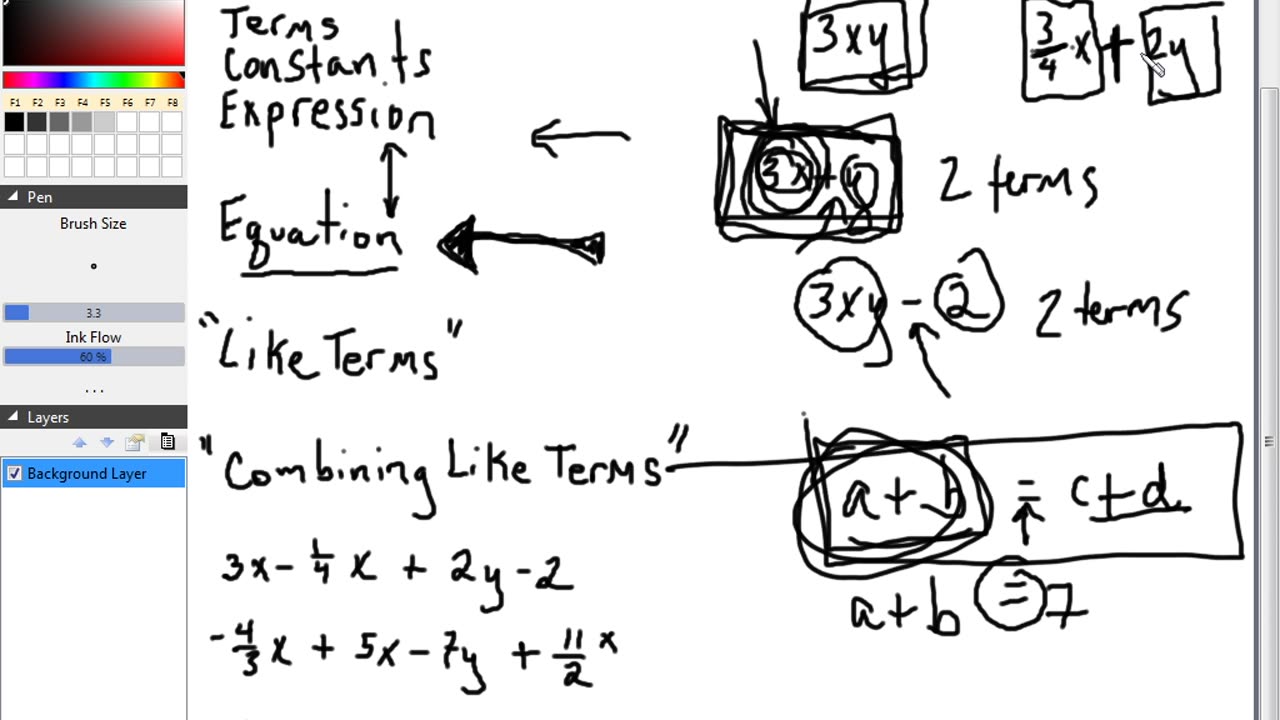 F1 F2 F3 F4 F5 F6 F7 F8
Pen
Brush Size
3.3
Ink Flow
60 %
...
Layers
Background Layer
Terms
Constants
Expression
Equation
"Like Terms"
"Combining Like Terms"
3x - 1/4 x + 2y - 2
-4/3 x + 5x - 7y + 11/2 x
3xy
3/4 · x + 2y
3x + y 2 terms
3xy - 2 2 terms
a + b = c + d
a + b = 7